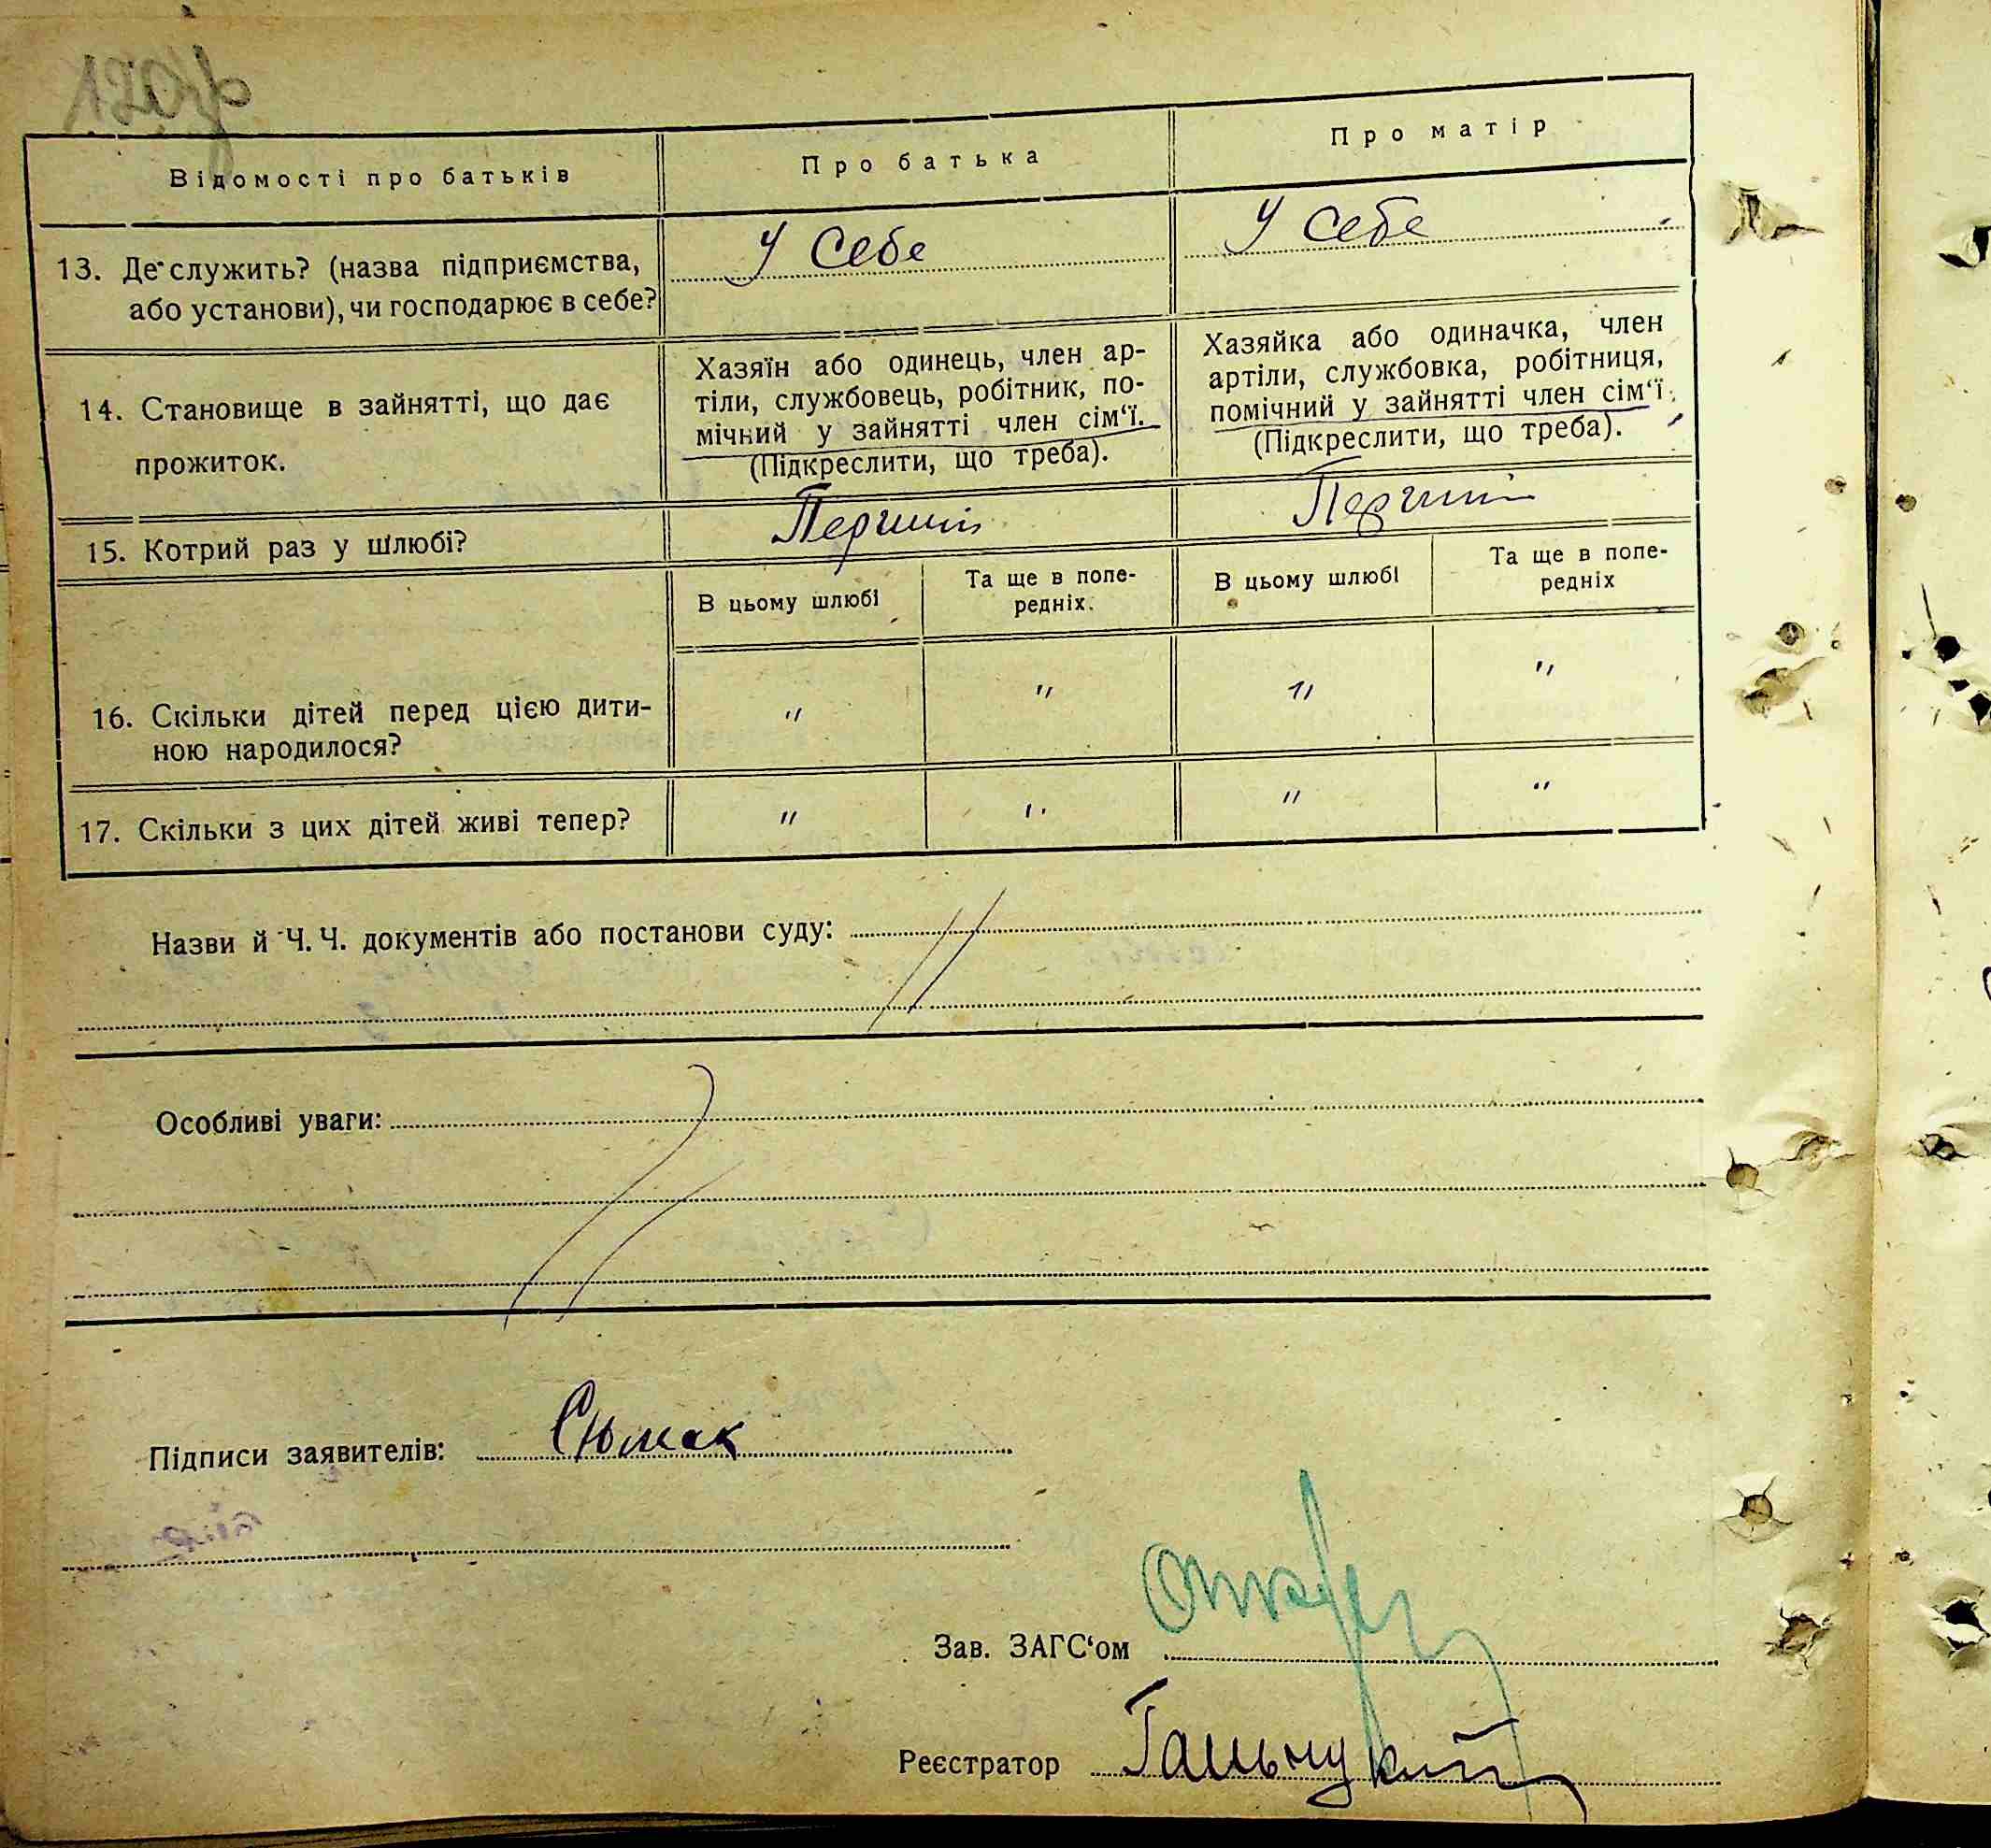 Відомості про батьків
Про батька
Про матір
13. Де служить? (назва підприємства,
або установи), чи господарює в себе?
У себе
У себе
14. Становище в зайнятті, що дає
прожиток.
Хазяїн або одинець, член ар-
тіли, службовець, робітник, по-
мічний у зайнятті член сім'ї.
(Підкреслити, що треба).
Хазяйка або одиначка, член
артіли, службовка, робітниця,
помічний у зайнятті член сім'ї.
(Підкреслити, що треба).
15. Котрий раз у шлюбі?
Перший
Перший
В цьому шлюбі
Та ще в попе-
редніх.
В цьому шлюбі
Та ще в попе-
редніх
16. Скільки дітей перед цією дити-
ною народилося?
"
"
"
"
17. Скільки з цих дітей живі тепер?
"
"
"
"
Назви й Ч. Ч. документів або постанови суду:
Особливі уваги:
Підписи заявителів:
Зав. ЗАГС'ом
Реєстратор